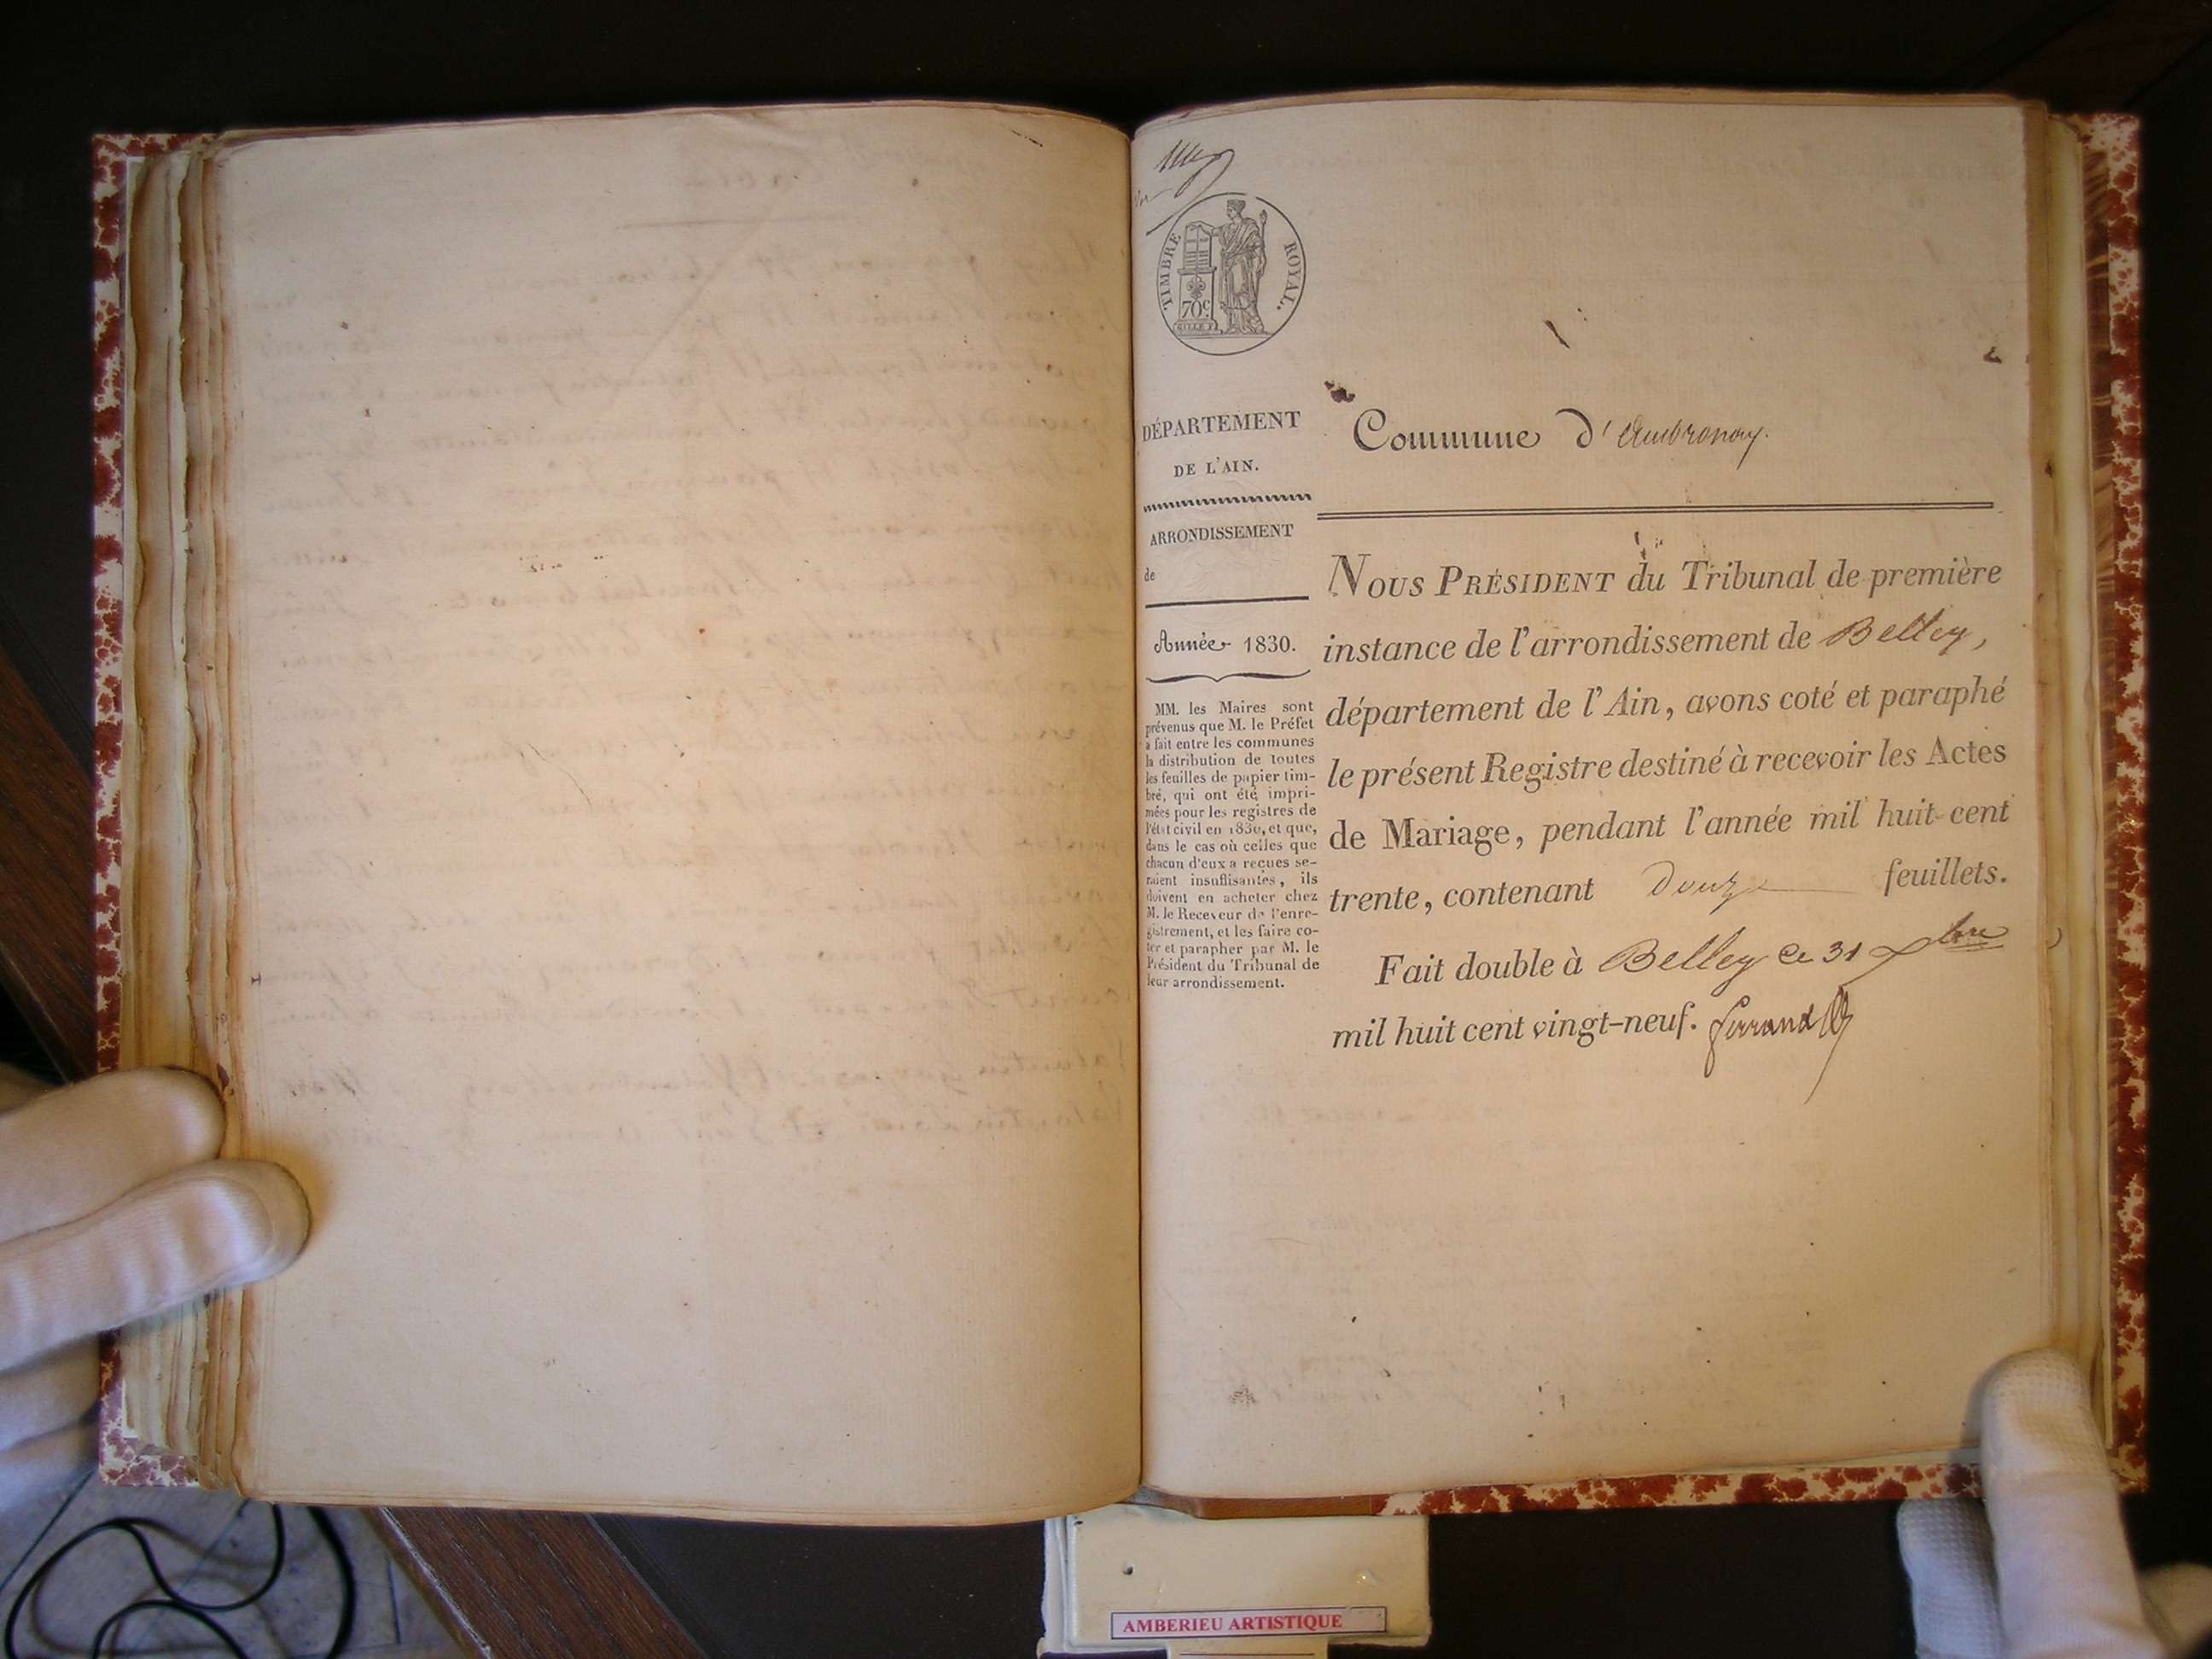 TIMBRE ROYAL.
70c
DÉPARTEMENT
DE L'AIN.
ARRONDISSEMENT
de
Année 1830.
MM. les Maires sont
prévenus que M. le Préfet
a fait entre les communes
la distribution de toutes
les feuilles de papier tim-
bré, qui ont été impri-
mées pour les registres de
l'état civil en 1830, et que,
dans le cas où celles que
chacun d'eux a reçues se-
raient insuffisantes, ils
doivent en acheter chez
M. le Receveur de l'enre-
gistrement, et les faire co-
ter et parapher par M. le
Président du Tribunal de
leur arrondissement.
Commune d'Ambronay.
NOUS PRÉSIDENT du Tribunal de première
instance de l'arrondissement de Belley,
département de l'Ain, avons coté et paraphé
le présent Registre destiné à recevoir les Actes
de Mariage, pendant l'année mil huit cent
trente, contenant Douze feuillets.
Fait double à Belley ce 31 Xbre
mil huit cent vingt-neuf.
AMBERIEU ARTISTIQUE